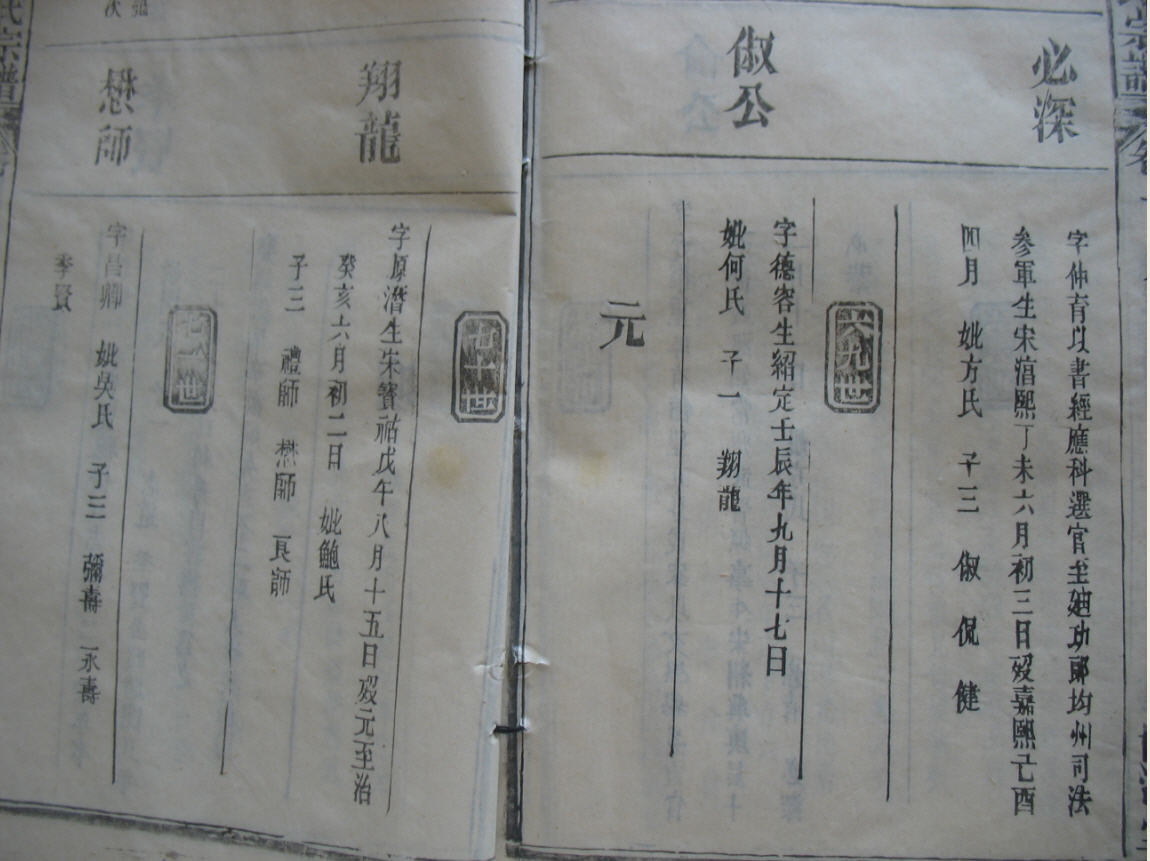 必深
字仲育以書經應科選官至廸功郎均州司法
參軍生宋湻熙丁未六月初三日歿嘉熙己酉
四月 妣方氏 子三 俶 侃 健
六九世
俶公
字德容生紹定壬辰年九月十七日
妣何氏 子一 翔龍
元
七十世
翔龍
字原潛生宋寶祐戊午八月十五日歿元至治
癸亥六月初二日 妣鮑氏
子三 禮師 懋師 良師
七一世
懋師
字昌卿 妣吳氏 子三 彌壽 永壽
季賢
氏宗譜